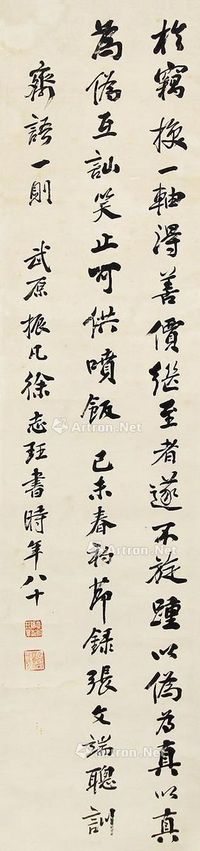 於竊換一軸得善價繼至者遂不旋踵以偽為真以真
為偽互訕笑止可供噴飯 己未春初節錄張文端聰訓
齋語一則 武原振凡徐志珏書時年八十
Artron.Net